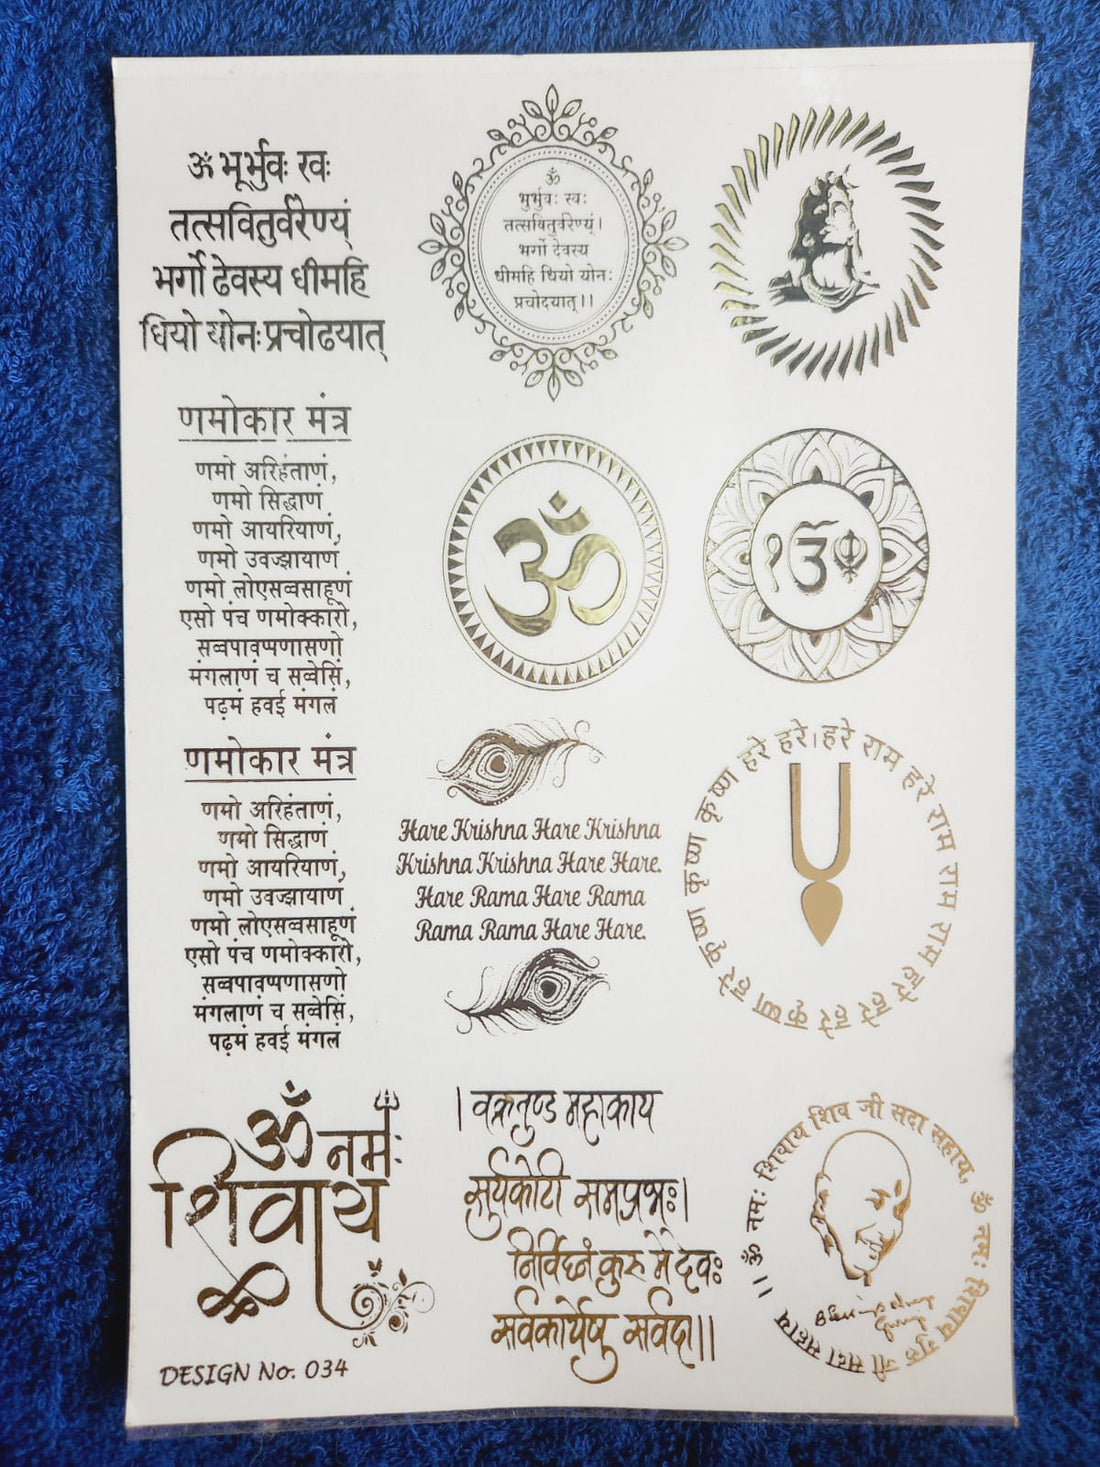 ॐ भूर्भुवः स्वः
तत्सवितुर्वरेण्यं
भर्गो देवस्य धीमहि
धियो योनः प्रचोदयात्
ॐ
भुर्भुवः स्वः
तत्सवितुर्वरेण्यं।
भर्गो देवस्य
धीमहि धियो योनः
प्रचोदयात्।।
णमोकार मंत्र
णमो अरिहंताणं,
णमो सिद्धाणं
णमो आयरियाणं,
णमो उवज्झायाणं
णमो लोएसव्वसाहूणं
एसो पंच णमोक्कारो,
सव्वपावप्पणासणो
मंगलाणं च सव्वेसिं,
पढ़मं हवई मंगलं
ॐ
१ॐ
णमोकार मंत्र
णमो अरिहंताणं,
णमो सिद्धाणं
णमो आयरियाणं,
णमो उवज्झायाणं
णमो लोएसव्वसाहूणं
एसो पंच णमोक्कारो,
सव्वपावप्पणासणो
मंगलाणं च सव्वेसिं,
पढ़मं हवई मंगलं
Hare Krishna Hare Krishna
Krishna Krishna Hare Hare.
Hare Rama Hare Rama
Rama Rama Hare Hare.
हरे राम हरे राम राम राम हरे हरे हरे कृष्ण हरे कृष्ण कृष्ण कृष्ण हरे हरे।
ॐ नमः
शिवाय
। वक्रतुण्ड महाकाय
सूर्यकोटी समप्रभः।
निर्विघ्नं कुरु मे देवः
सर्वकार्येषु सर्वदा।।
।। ॐ नमः शिवाय शिव जी सदा सहाय, ॐ नमः शिवाय गुरु जी सदा सहाय
DESIGN No. 034